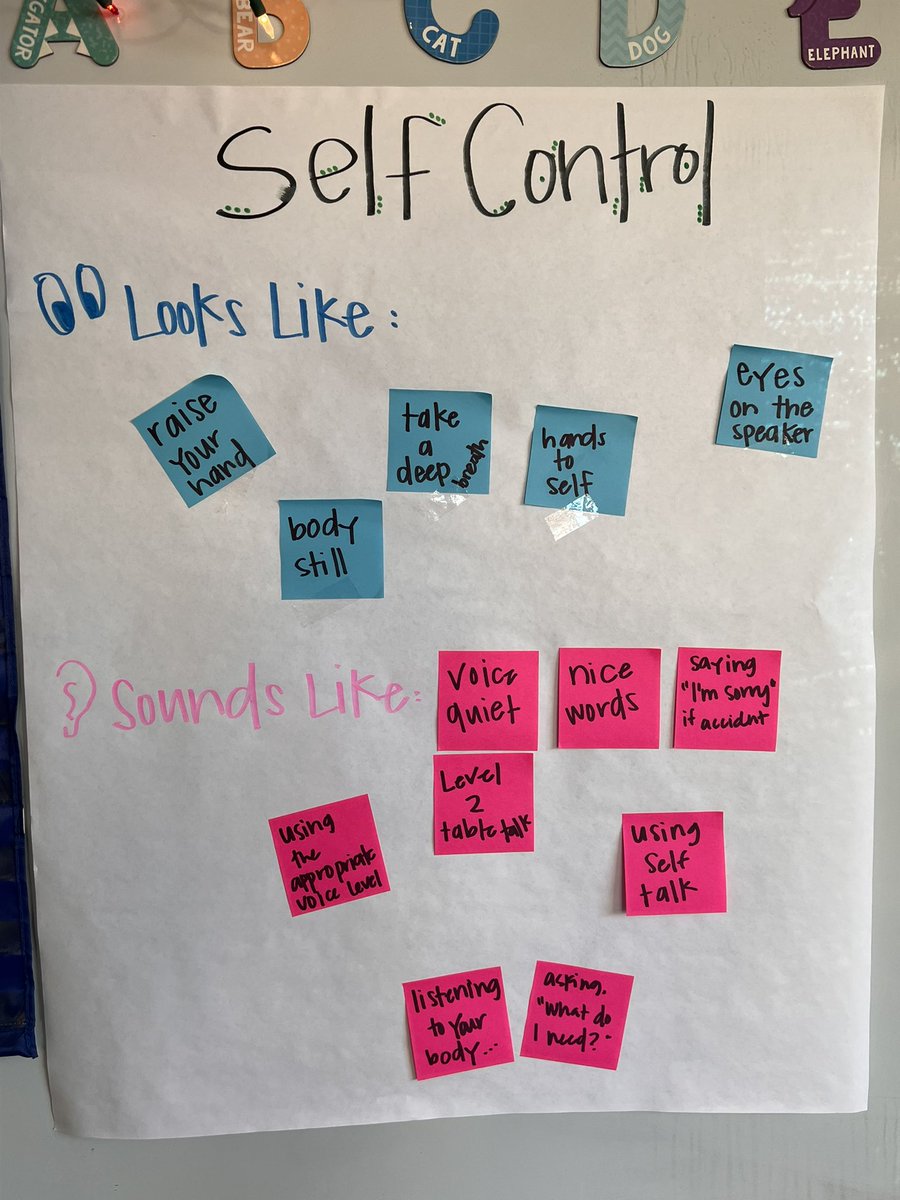 GATOR
BEAR
CAT
DOG
ELEPHANT
A B C D E
Self Control
Looks Like:
raise
your
hand
take
a
deep breath
hands
to
self
eyes
on the
speaker
body
still
Sounds Like:
voice
quiet
nice
words
saying
"I'm sorry"
if accidnt
Level
2
table talk
using
the
appropriate
voice level
using
self
talk
listening
to your
body...
asking.
"What do
I need?"